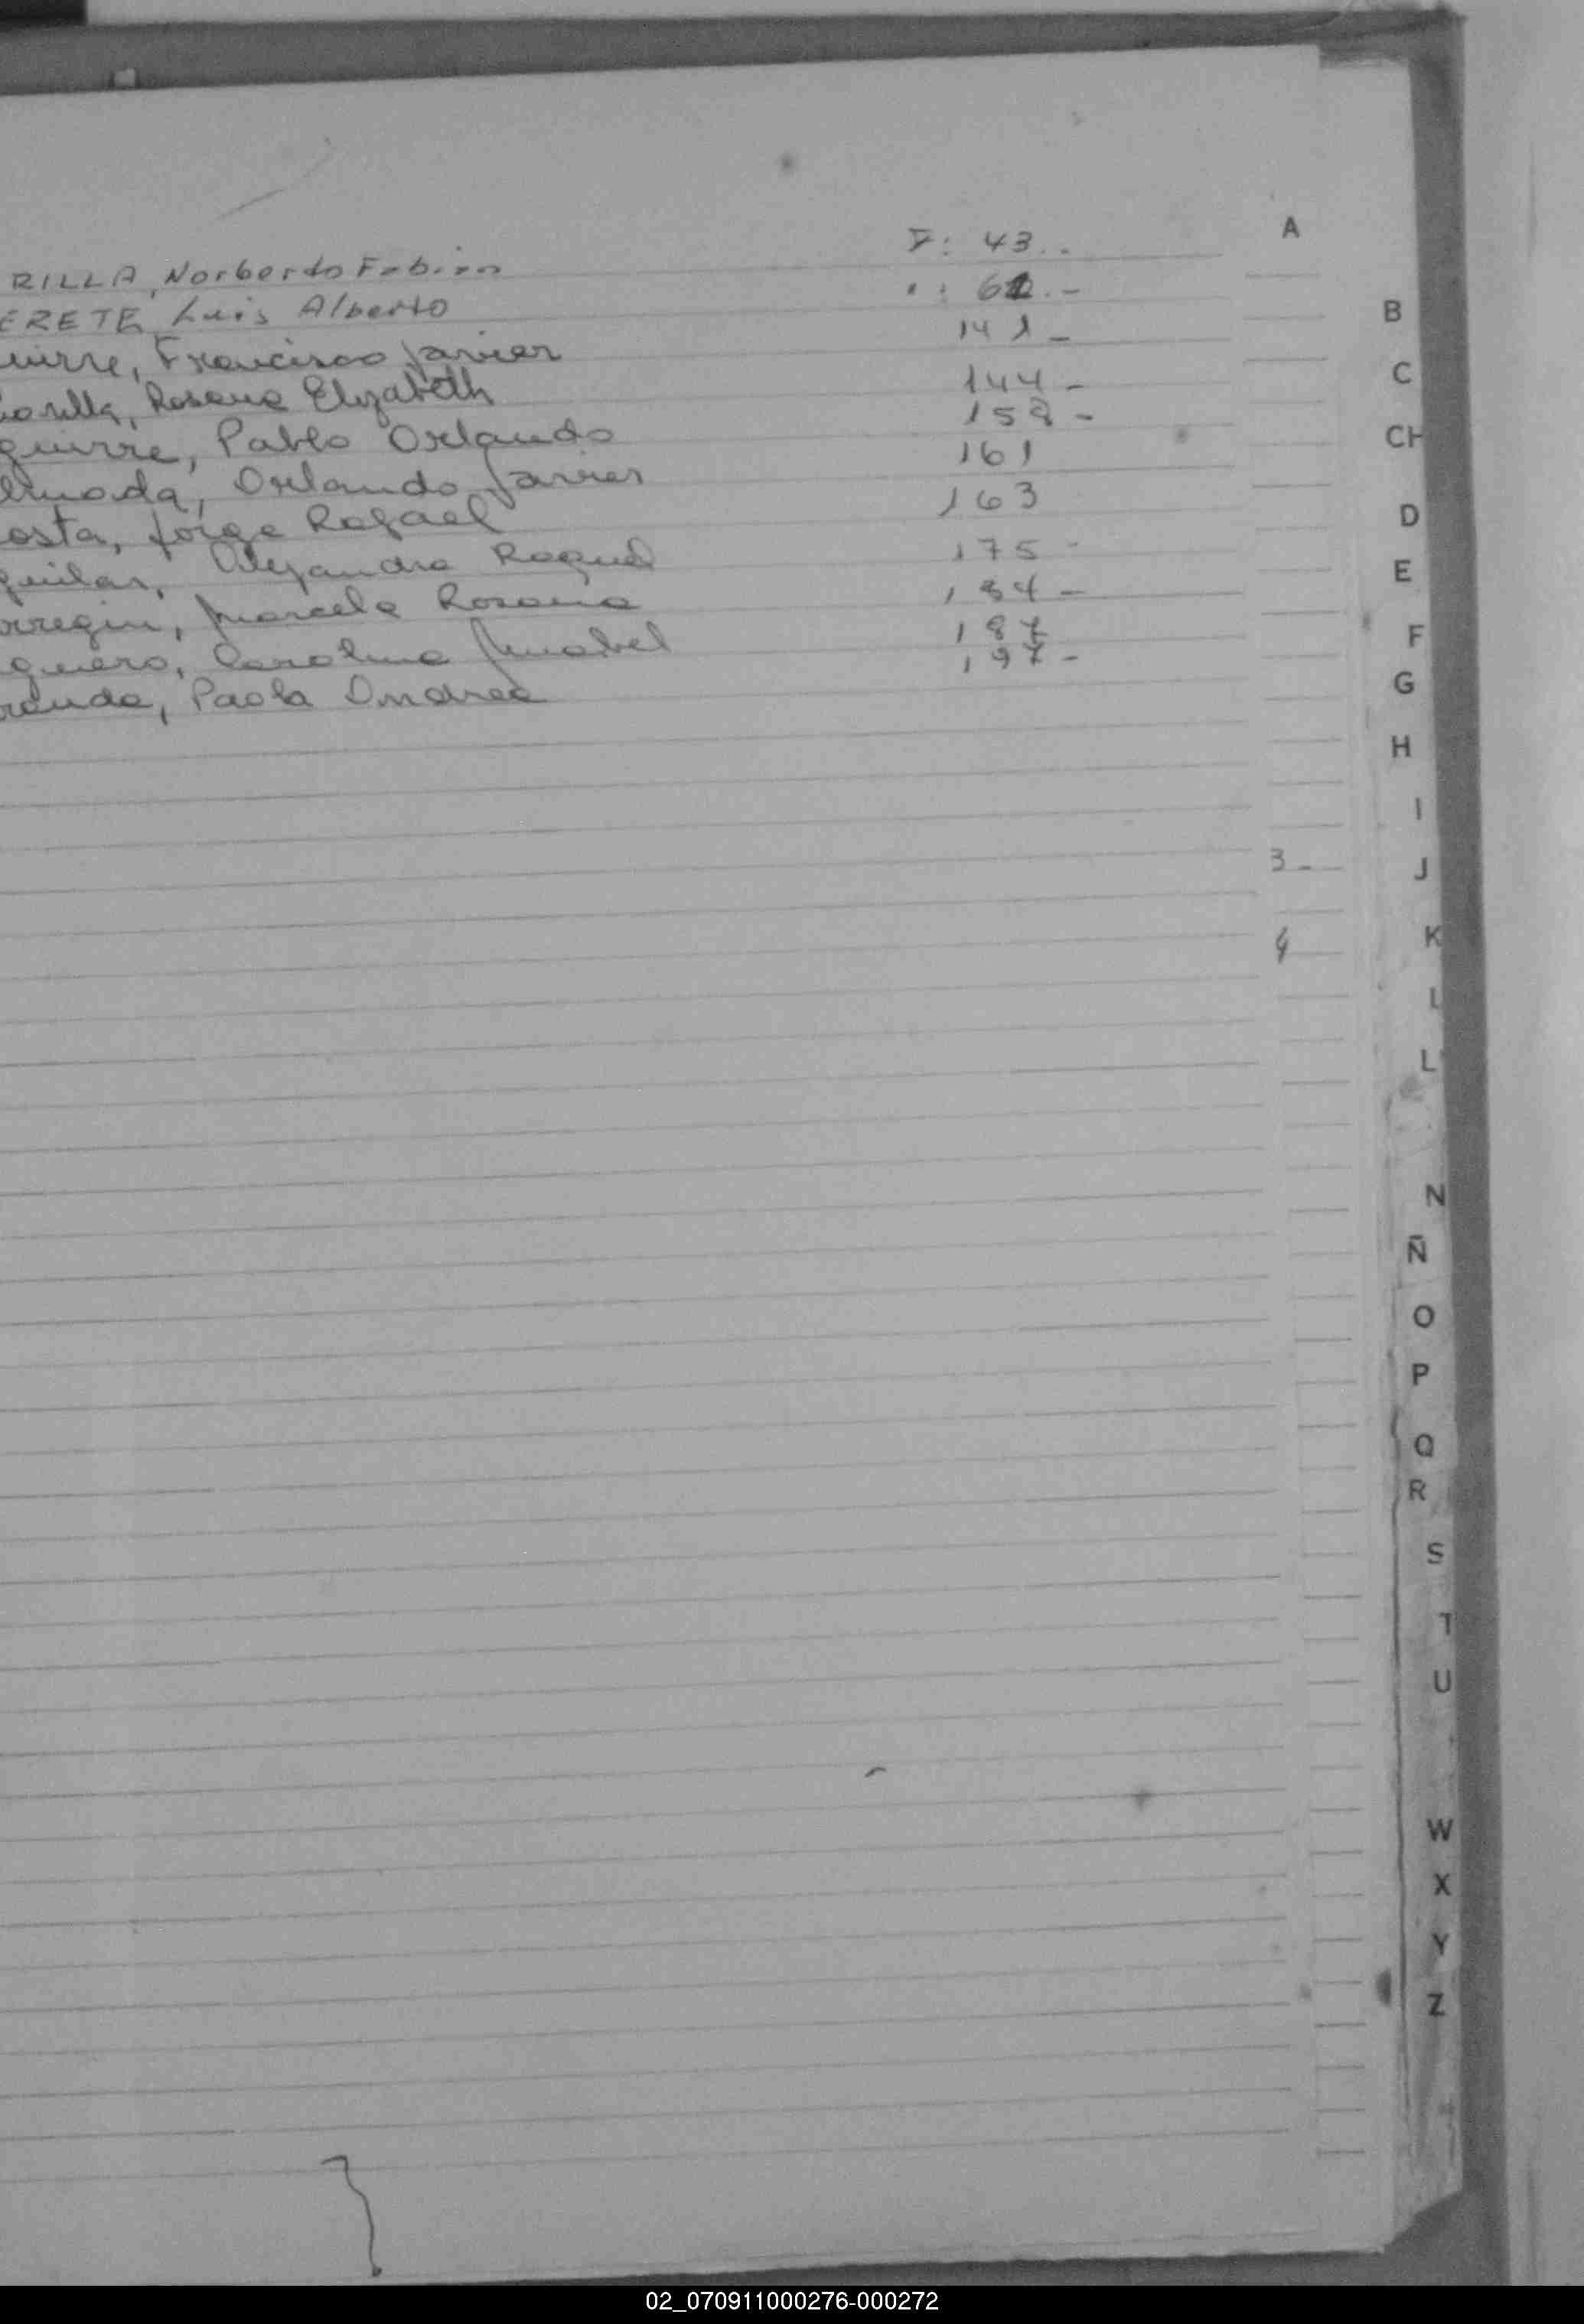 RILLA, Norberto Fabian F: 43..
ERETE, Luis Alberto ": 62.-
uirre, Francisco Javier 141 -
Rosana Elizabeth 144 -
guirre, Pablo Orlando 158 -
lmada, Orlando Javier 161
osta, Jorge Rafael 163
guilar, Alejandra Raquel 175 -
rregin, Marcela Rosana 184 -
guero, Carolina Anabel 187
randa, Paola Andrea 197 -
A
B
C
CH
D
E
F
G
H
I
3- J
4 K
L
L
N
Ñ
O
P
Q
R
S
T
U
W
X
Y
Z
02_070911000276-000272